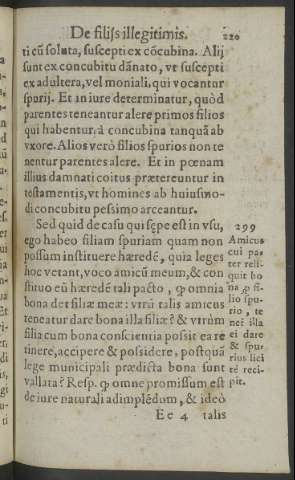 De filijs illegitimis. 220
ti cū soluta, suscepti ex cōcubina. Alij
sunt ex concubitu dānato, vt suscepti
ex adultera, vel moniali, qui vocantur
spurij. Et in iure determinatur, quòd
parentes teneantur alere primos filios
qui habentur à concubina tanquā ab
vxore. Alios verò filios spurios non te
nentur parentes alere. Et in pœnam
illius damnati coitus prætereuntur in
testamentis, vt homines ab huiusmo-
di concubitu pessimo arceantur.
Sed quid de casu qui sępe est in vsu,
ego habeo filiam spuriam quam non
possum instituere hæredē, quia leges
hoc vetant, voco amicū meum, & con
stituo eū hæredē tali pacto, ꝙ omnia
bona det filiæ meæ: vtrū talis amicus
teneatur dare bona illa filiæ? & vtrùm
filia cum bona conscientia possit ea re
tinere, accipere & possidere, postquā
lege municipali prædicta bona sunt
vallata? Resp. ꝙ omne promissum est
de iure naturali adimplēdum, & ideò
Ee 4 talis
299
Amicus
cui pa-
ter reli-
quit bo
na ꝓ fi-
lio spu-
rio, te
net illa
ei dare
& spu-
rius lici
tè reci-
pit.